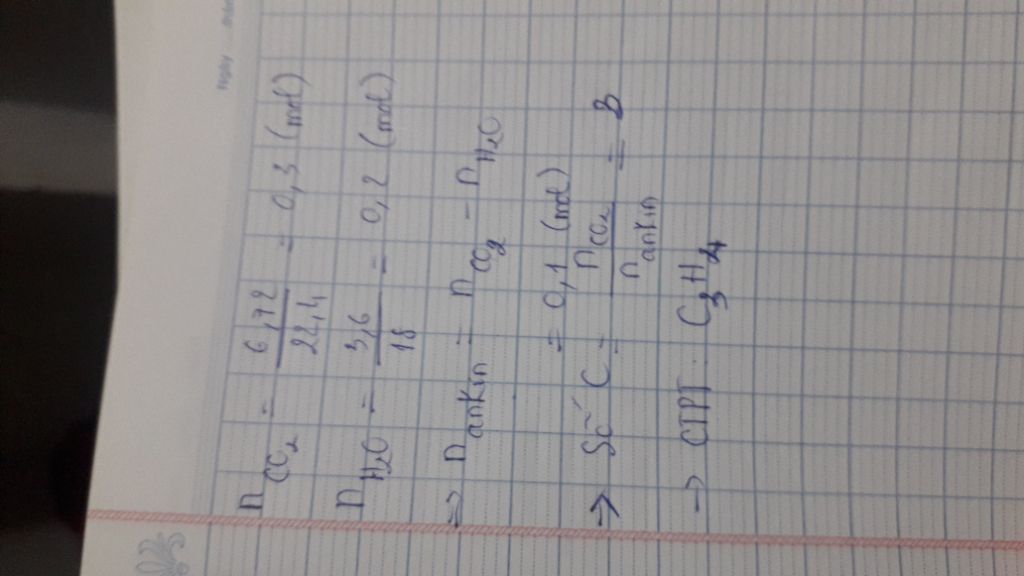 n CO2 = 6,72 / 22,4 = 0,3 (mol)
n H2O = 3,6 / 18 = 0,2 (mol)
=> n ankin = n CO2 - n H2O
= 0,1 (mol)
=> Số C = n CO2 / n ankin = 3
-> CTPT : C3H4
Ngày